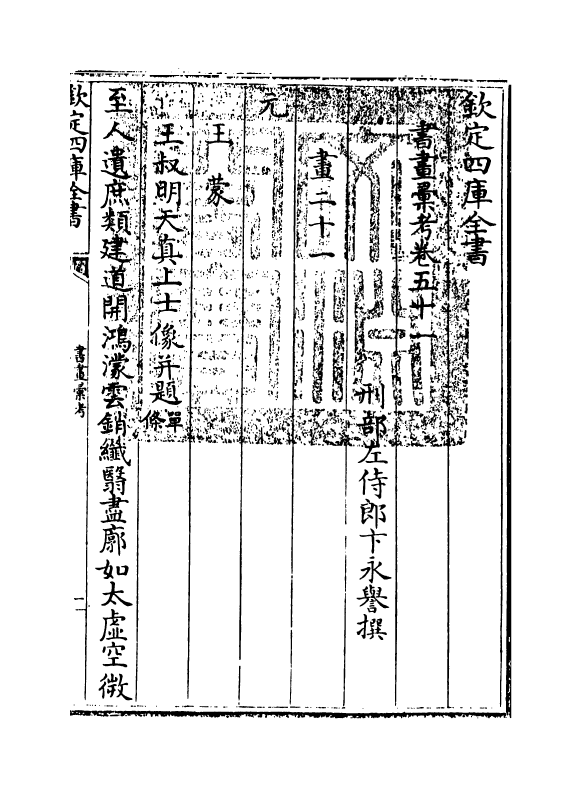 欽定四庫全書
書畫彙考卷五十一
刑部左侍郎卞永譽撰
畫二十一
元
王蒙
王叔明天真上士像并題單條
至人遺庶類建道開鴻濛雲銷纖翳盡廓如太虛空微
欽定四庫全書
書畫彙考